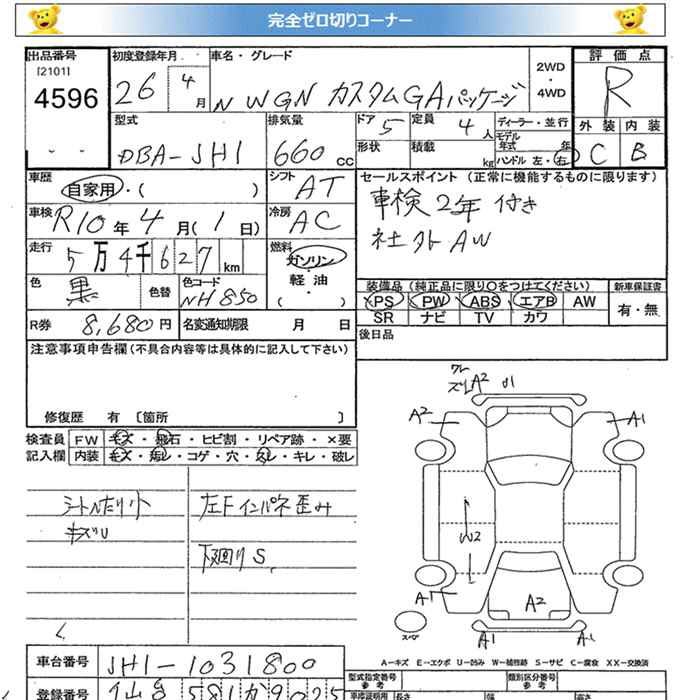 完全ゼロ切りコーナー
出品番号 初度登録年月 車名・グレード 評価点
[2101] 2WD
4596 26年 4月 N WGN カスタムGAパッケージ ・4WD R
型式 排気量 ドア 5 定員 4人 ディーラー・並行 外装 内装
DBA-JH1 660cc 形状 積載 kg モデル年式 年 C B
ハンドル 左・右
車歴 自家用・( ) シフト AT セールスポイント (正常に機能するものに限ります)
車検 R10年4月(1日) 冷房 AC 車検2年付き
走行 5万4千627km 燃料 ガソリン・軽油・( ) 社外AW
色 黒 色替 色コード NH850 装備品 (純正品に限り○をつけてください) 新車保証書
PS PW ABS エアB AW 有・無
SR ナビ TV カワ
R券 8,680円 名変通知期限 月 日 後日品
注意事項申告欄(不具合内容等は具体的に記入して下さい)
修復歴 有 〔箇所 〕
検査員 FW キズ・飛石・ヒビ割・リペア跡・×要
記入欄 内装 キズ・汚レ・コゲ・穴・スレ・キレ・破レ
左Fインパネ歪み
キズU
下廻りS
A2 U1
A2 A1
W2
A1 A2
スペア A1 A1
A-キズ E-エクボ U-凹み W-補修跡 S-サビ C-腐食 XX-交換済
車台番号 JH1-1031800
登録番号 仙台 581か9025
型式指定番号 参考 類別区分番号 参考
車庫証明用 長さ 幅 高さ